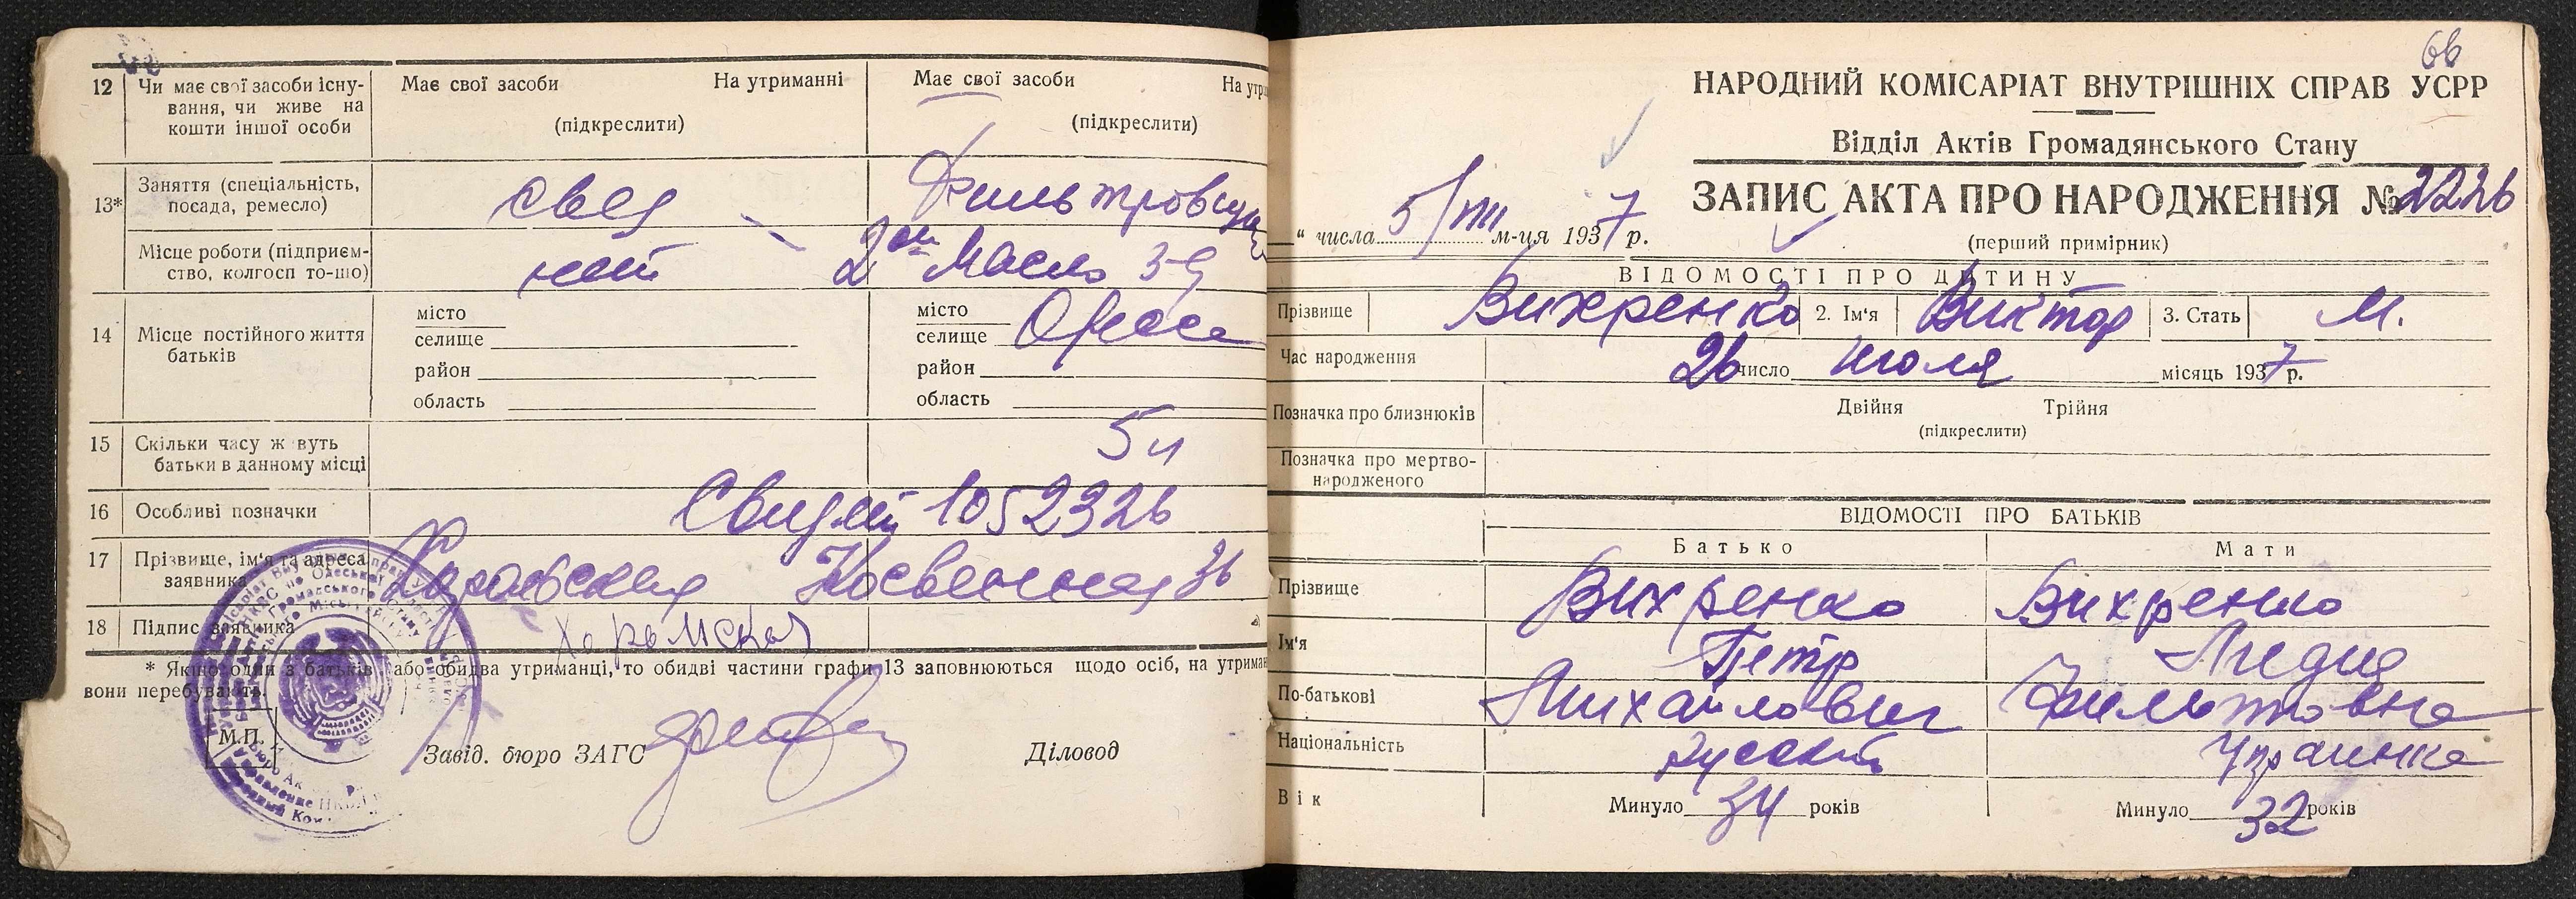 12 Чи має свої засоби існу-
вання, чи живе на
кошти іншої особи
Має свої засоби На утриманні
(підкреслити)
Має свої засоби На утри
(підкреслити)
13* Заняття (спеціальність,
посада, ремесло)
Фильтровщица
Місце роботи (підприєм-
ство, колгосп то-що)
2ой Масло з-д
14 Місце постійного життя
батьків
місто
селище
район
область
місто
селище Одесса
район
область
15 Скільки часу живуть
батьки в данному місці
5 л
16 Особливі позначки
1052326
17 Прізвище, ім'я та адреса
заявника
Косвенная 36
18 Підпис заявника
* Якщо один з батьків або обидва утриманці, то обидві частини графи 13 заповнюються щодо осіб, на утриман
вони перебувають.
М.П.
Завід. бюро ЗАГС Діловод
66
НАРОДНИЙ КОМІСАРІАТ ВНУТРІШНІХ СПРАВ УСРР
Відділ Актів Громадянського Стану
ЗАПИС АКТА ПРО НАРОДЖЕННЯ № 2226
" числа 5/VIII м-ця 1937 р.
(перший примірник)
ВІДОМОСТІ ПРО ДИТИНУ
Прізвище Вихренко 2. Ім'я Виктор 3. Стать М.
Час народження 26 число июля місяць 1937 р.
Позначка про близнюків Двійня Трійня
(підкреслити)
Позначка про мертво-
народженого
ВІДОМОСТІ ПРО БАТЬКІВ
Батько Мати
Прізвище Вихренко Вихренко
Ім'я Петр Лидия
По-батькові Михайлович
Національність русский Украинка
Вік Минуло 34 років Минуло 32 років